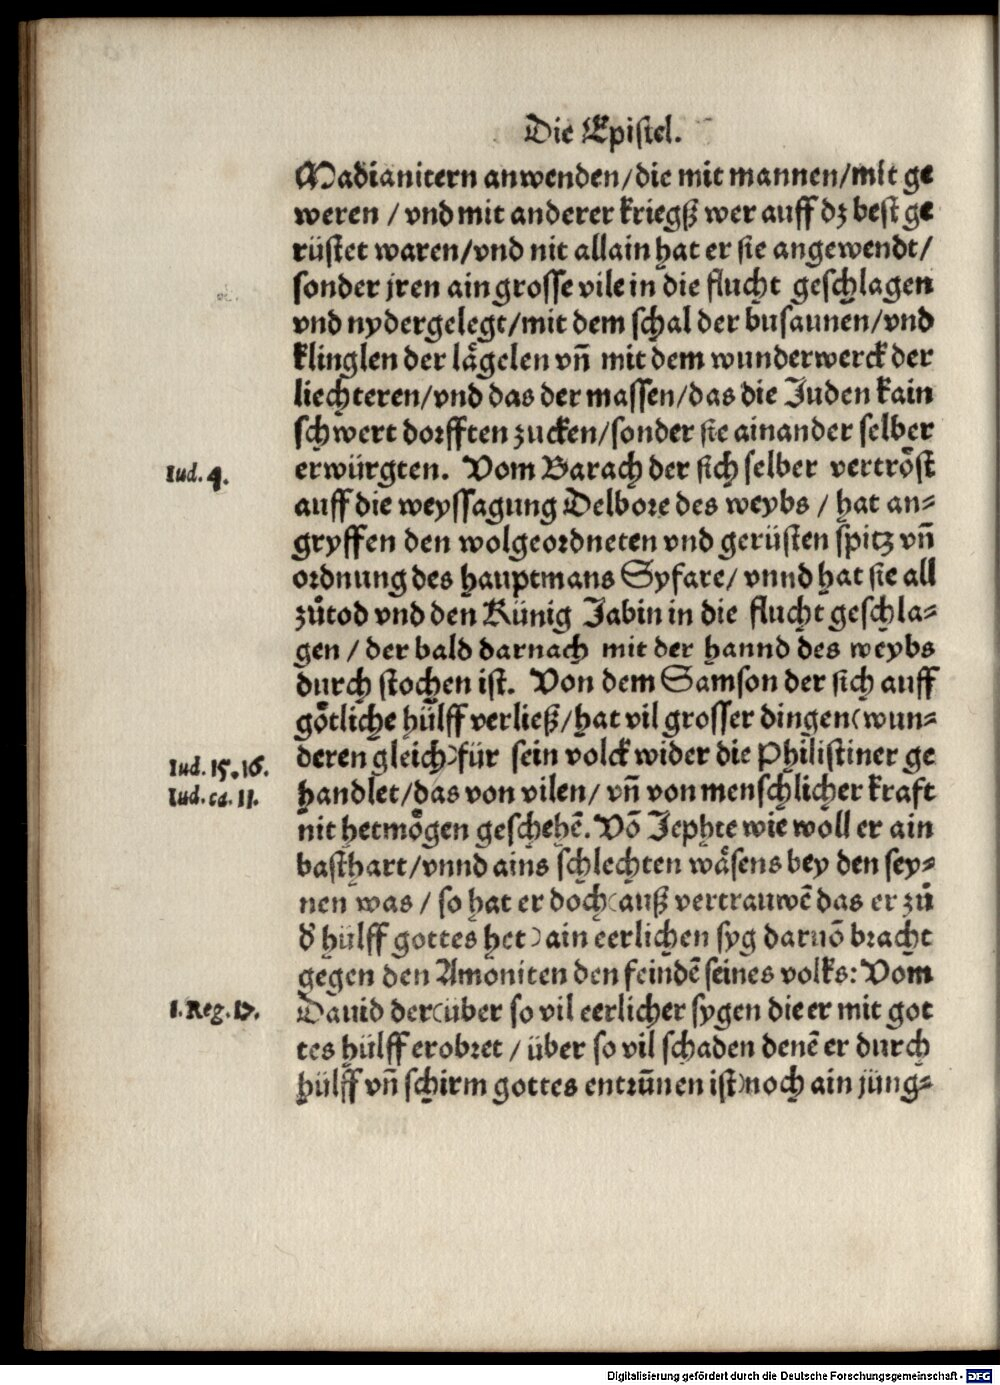 Die Epistel.
Madianitern anwenden/die mit mannen/mit ge
weren / vnd mit anderer kriegß wer auff dz best ge
rüstet waren/vnd nit allain hat er sie angewendt/
sonder jren ain grosse vile in die flucht geschlagen
vnd nydergelegt/mit dem schal der busaunen/vnd
klinglen der lågelen vn̄ mit dem wunderwerck der
liechteren/vnd das der massen/das die Juden kain
schwert dorfften zucken/sonder sie ainander selber
Iud. 4.
erwürgten. Vom Barach der sich selber vertrőst
auff die weyssagung Delbore des weybs / hat an-
gryffen den wolgeordneten vnd gerüsten spitz vn̄
ordnung des hauptmans Syfare/ vnnd hat sie all
zůtod vnd den Künig Jabin in die flucht geschla-
gen / der bald darnach mit der hannd des weybs
durch stochen ist. Von dem Samson der sich auff
götliche hülff verließ/hat vil grosser dingen(wun-
Iud. 15.16.
deren gleich)für sein volck wider die Philistiner ge
Iud. ca. 11.
handlet/das von vilen/ vn̄ von menschlicher kraft
nit hetmögen geschehē. Vō Jephte wie woll er ain
basthart/vnnd ains schlechten wäsens bey den sey-
nen was / so hat er doch(auß vertrauwē das er zů
d' hülff gottes het)ain eerlichen syg daruō bracht
gegen den Amoniten den feindē seines volks: Vom
I. Reg. 17.
Dauid der(über so vil eerlicher sygen die er mit got
tes hülff erobret / über so vil schaden denē er durch
hülff vn̄ schirm gottes entrūnen ist)noch ain jüng-
Digitalisierung gefördert durch die Deutsche Forschungsgemeinschaft - DFG